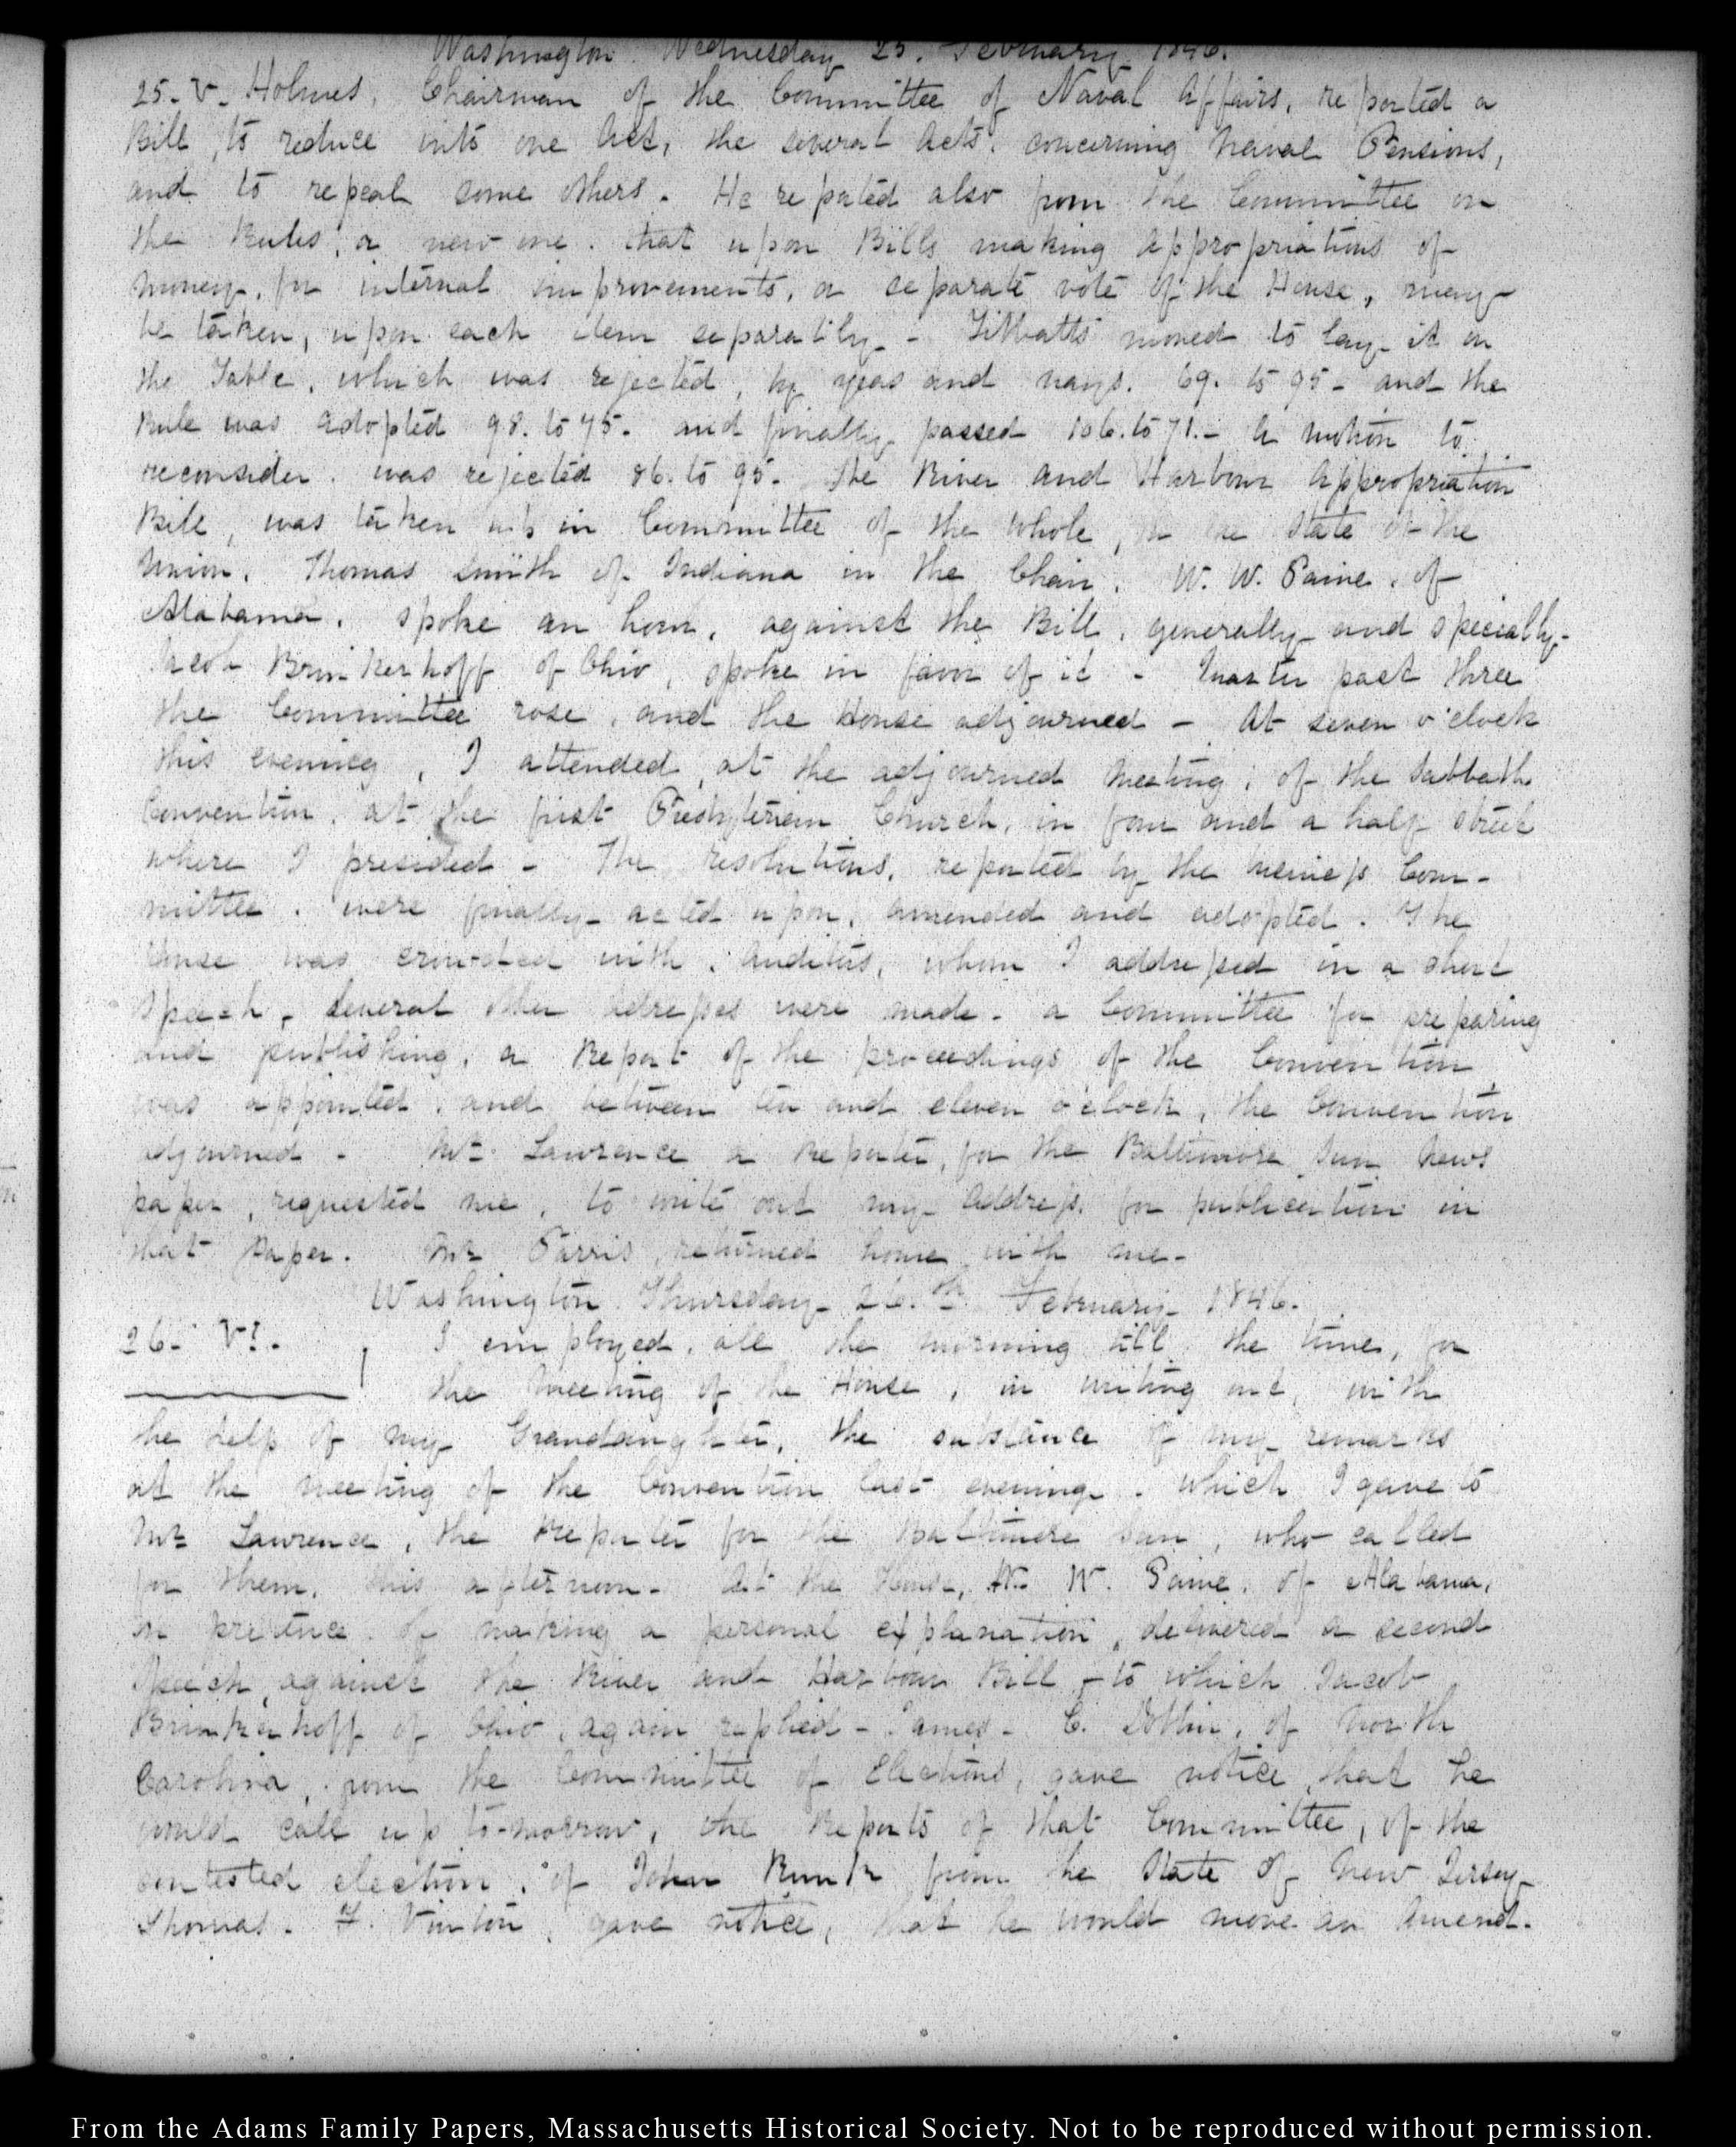 Washington Wednesday 25. February 1846.
25. V. Holmes, Chairman of the Committee of Naval Affairs, reported a
Bill, to reduce into one Act, the several Acts, concerning Naval Pensions,
and to repeal some others. He reported also from the Committee on
the Rules, a new one. that upon Bills making appropriations of
money, for internal improvements, a separate vote of the House, may
be taken, upon each item separately. - Tibbatts moved to lay it on
the Table, which was rejected, by yeas and nays. 69. to 95 - and the
Rule was adopted 98. to 75. and finally passed 106. to 71. - A motion to
reconsider. was rejected 86. to 95. The River and Harbour Appropriation
Bill, was taken up in Committee of the whole, on the State of the
Union. Thomas Smith of Indiana in the Chair. W. W. Paine, of
Alabama. spoke an hour, against the Bill, generally and specially -
Jacob Brinkerhoff of Ohio, spoke in favor of it - Quarter past three
the Committee rose, and the House adjourned - At seven o'clock
this evening, I attended, at the adjourned meeting, of the Sabbath
Convention, at the first Presbyterian Church, in four and a half street
where I presided - The resolutions, reported by the business Com-
mittee. were finally acted upon, amended and adopted. The
house was crowded with auditors, whom I addressed in a short
speech, several other addresses were made. a Committee for preparing
and publishing, a Report of the proceedings of the Convention
was appointed, and between ten and eleven o'clock, the Convention
adjourned - Mr. Lawrence a Reporter, for the Baltimore Sun News
paper, requested me, to write out my Address for publication in
that Paper. Mr Farris, returned home with me.
Washington Thursday 26.th February 1846.
26. VI. I employed, all the morning till the time, for
the meeting of the House, in writing out, with
the help of my Grandaughter, the substance of my remarks
at the meeting of the Convention last evening. which I gave to
Mr Lawrence, the Reporter for the Baltimore Sun, who called
for them, this afternoon. At the House, W. W. Paine, of Alabama,
on pretence of making a personal explanation, delivered a second
speech, against the River and Harbour Bill - to which Jacob
Brinkerhoff of Ohio, again replied - James - C. Dobbin, of North
Carolina, from the Committee of Elections, gave notice, that he
would call up to-morrow, the Reports of that Committee, of the
contested election, of John Runk from the State of New Jersey
Thomas. F. Vinton, gave notice, that he would move an Amend-
From the Adams Family Papers, Massachusetts Historical Society. Not to be reproduced without permission.